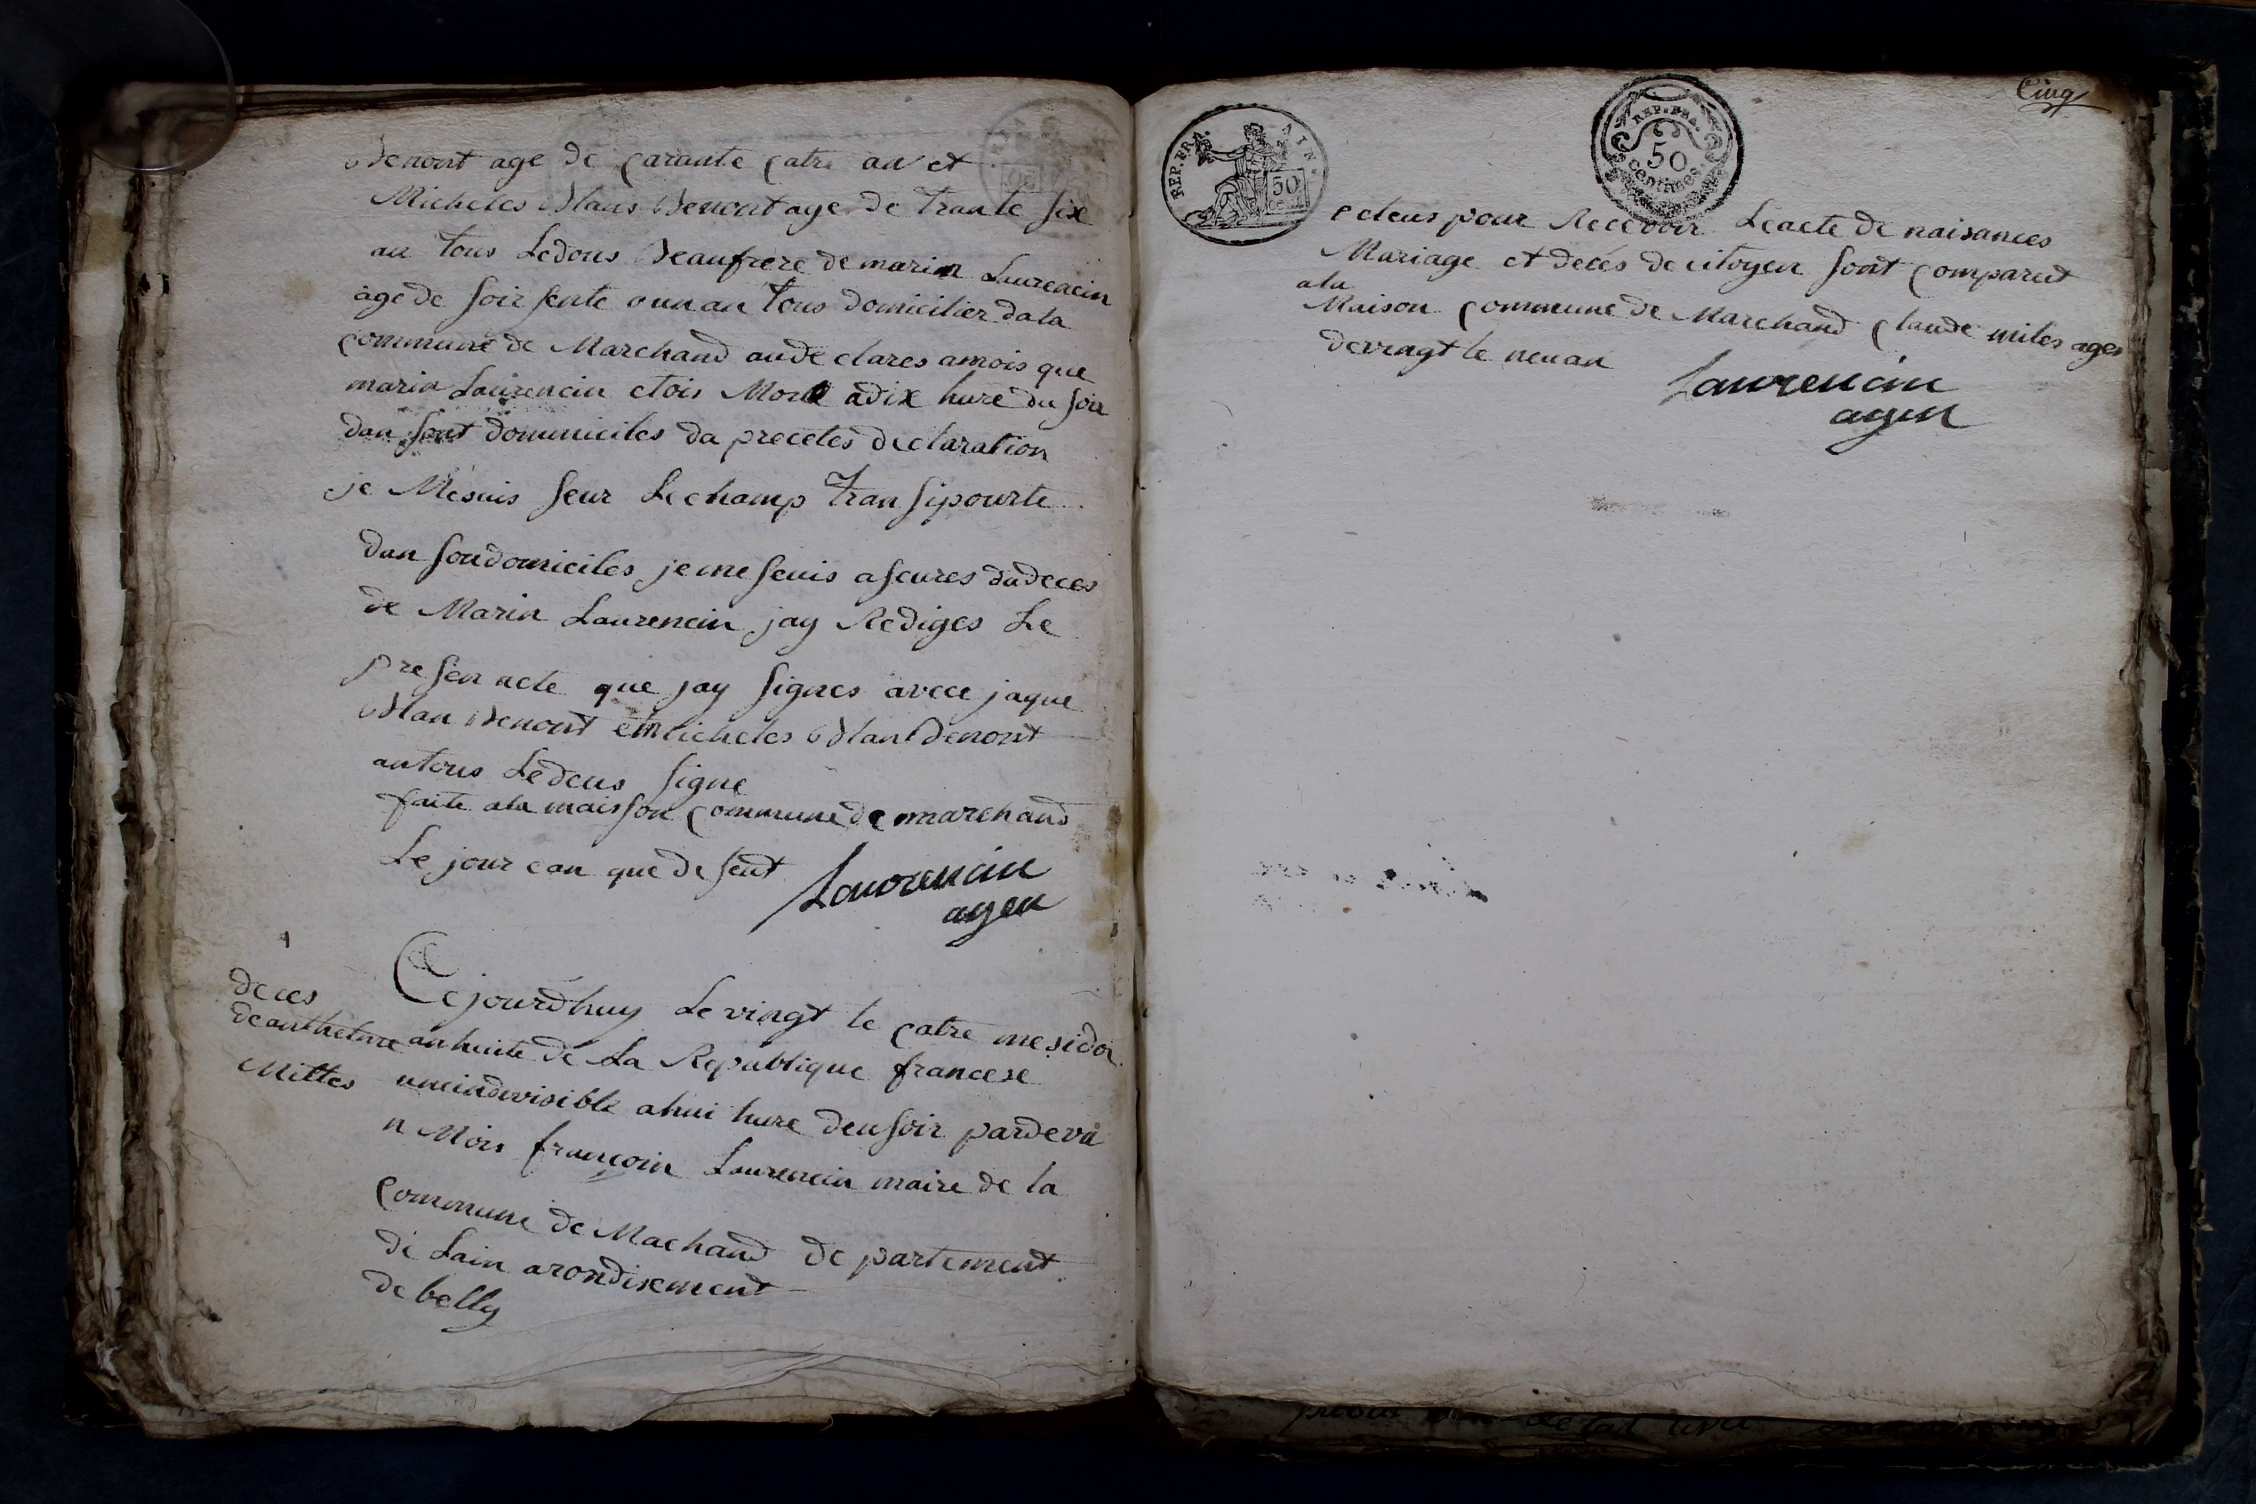 Benont age de carante catre an et
Micheles Blans Benont age de trante six
an tous Ledous Beaufrere de marin Laurencin
age de soissente ounan tous domicilier dala
commune de Marchand aude clares amois que
marin Laurencin etois Mort adix hure du soir
dan sont dommiciles da precetes declaration
je Mesuis seur Lechamp transipourte
dan sondomiciles jeme seuis aseures dudeces
de Marin Laurencin jay Rediges Le
presen acte que jay signes avece jaque
Blan Benont et micheles Blan Benont
antous Ledeus signe
faite ala maisson commune de marchand
Le jour ean que desent
Laurencin
agen
deces
de anthelme
Milles
Cejourdhuy Le vingt le catre mesidor
anhuite de La Republique francese
uneindivisible ahui hure deusoir pardeva
n Mois françoin Laurencin maire de la
commune de Machand de partement
de Lain arondisement
de belly
Cinq
REP. FRA. AIN
50 cent.
REP. FRA.
50
centimes
eleus pour Recevoir Leacte de naisances
Mariage et decés de citoyen sont comparut
ala
Maison commune de Marchand claude miles ages
devingt le neuan
Laurencin
agen